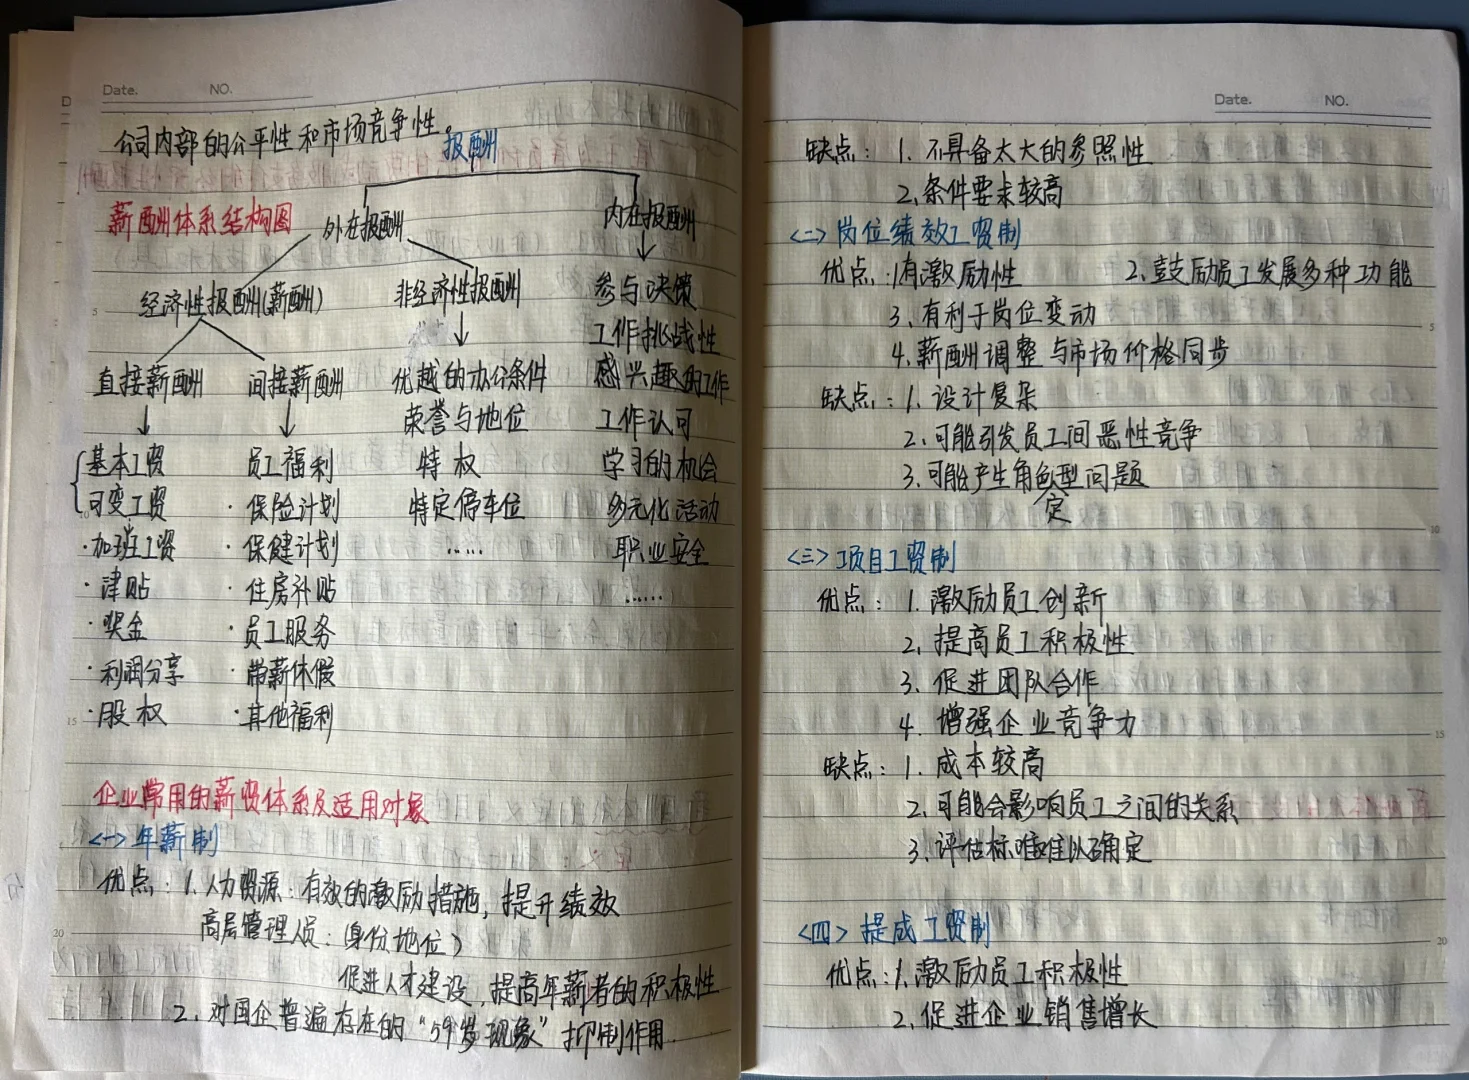 Date. NO.
公司内部的公平性和市场竞争性。
报酬
薪酬体系结构图
外在报酬 内在报酬
经济性报酬(薪酬) 非经济性报酬 参与决策
工作挑战性
直接薪酬 间接薪酬 优越的办公条件 感兴趣的工作
荣誉与地位 工作认可
基本工资 员工福利 特权 学习的机会
可变工资 ·保险计划 特定停车位 多元化活动
·加班工资 ·保健计划 …… 职业安全
·津贴 ·住房补贴 ……
·奖金 ·员工服务
·利润分享 带薪休假
·股权 ·其他福利
企业常用的薪资体系及适用对象
<一>年薪制
优点:1.人力资源:有效的激励措施,提升绩效
高层管理人员:(身份地位)
促进人才建设,提高年薪者的积极性
2.对国企普遍存在的“59岁现象”抑制作用.
Date. NO.
缺点:1.不具备太大的参照性
2.条件要求较高
<二>岗位绩效工资制
优点:1.有激励性 2.鼓励员工发展多种功能
3.有利于岗位变动
4.薪酬调整与市场价格同步
缺点:1.设计复杂
2.可能引发员工间恶性竞争
3.可能产生角色定型问题
<三>项目工资制
优点:1.激励员工创新
2.提高员工积极性
3.促进团队合作
4.增强企业竞争力
缺点:1.成本较高
2.可能会影响员工之间的关系
3.评估标准难以确定
<四>提成工资制
优点:1.激励员工积极性
2.促进企业销售增长